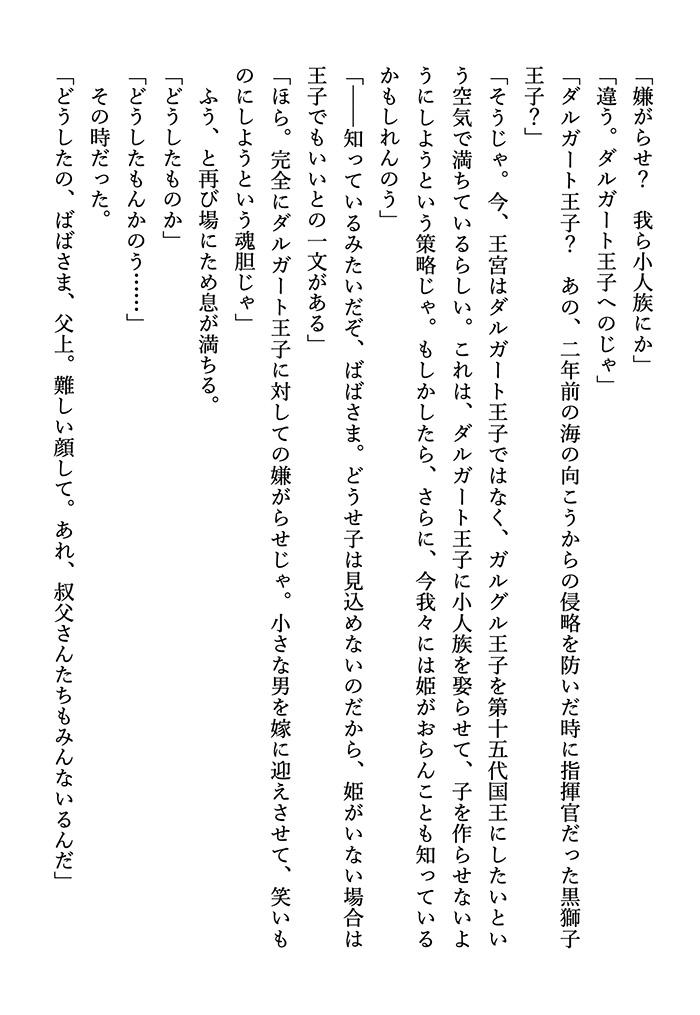 「嫌がらせ？　我ら小人族にか」
「違う。ダルガート王子へのじゃ」
「ダルガート王子？　あの、二年前の海の向こうからの侵略を防いだ時に指揮官だった黒獅子
王子？」
「そうじゃ。今、王宮はダルガート王子ではなく、ガルグル王子を第十五代国王にしたいとい
う空気で満ちているらしい。これは、ダルガート王子に小人族を娶らせて、子を作らせないよ
うにしようという策略じゃ。もしかしたら、さらに、今我々には姫がおらんことも知っている
かもしれんのう」
「――知っているみたいだぞ、ばばさま。どうせ子は見込めないのだから、姫がいない場合は
王子でもいいとの一文がある」
「ほら。完全にダルガート王子に対しての嫌がらせじゃ。小さな男を嫁に迎えさせて、笑いも
のにしようという魂胆じゃ」
　ふう、と再び場にため息が満ちる。
「どうしたものか」
「どうしたもんかのう……」
　その時だった。
「どうしたの、ばばさま、父上。難しい顔して。あれ、叔父さんたちもみんないるんだ」